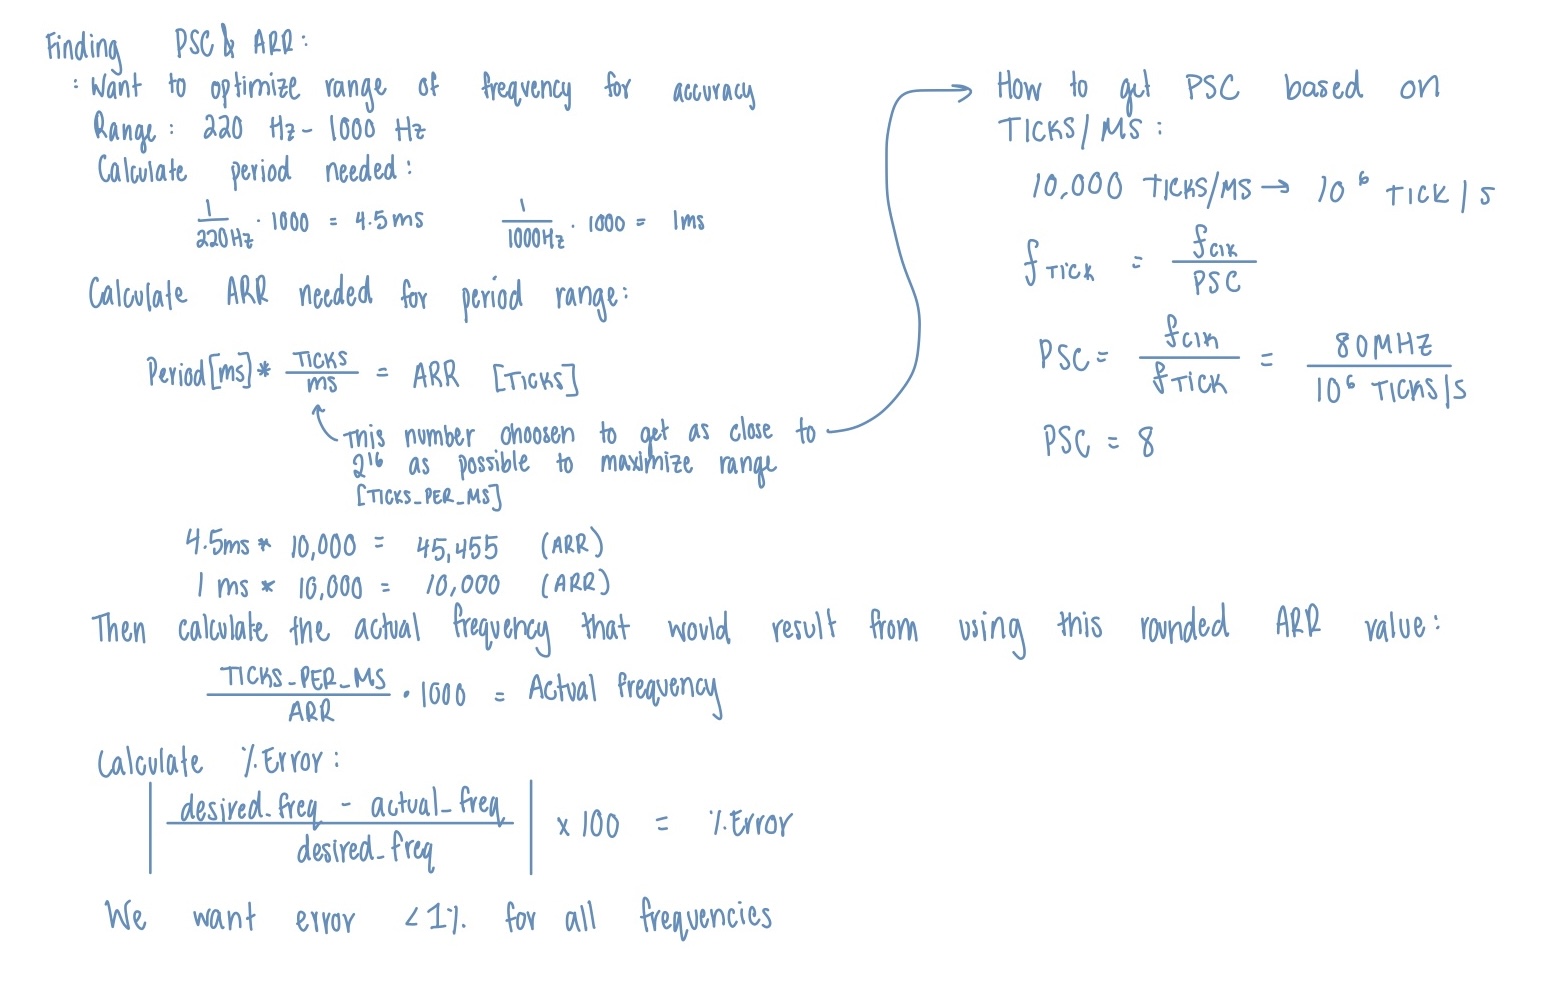 Finding PSC & ARR:
: Want to optimize range of frequency for accuracy
Range: 220 Hz - 1000 Hz
Calculate period needed:
1/220Hz · 1000 = 4.5ms 1/1000Hz · 1000 = 1ms
Calculate ARR needed for period range:
Period[ms] * TICKS/ms = ARR [TICKS]
This number choosen to get as close to
2^16 as possible to maximize range
[TICKS_PER_MS]
4.5ms * 10,000 = 45,455 (ARR)
1 ms * 10,000 = 10,000 (ARR)
Then calculate the actual frequency that would result from using this rounded ARR value:
TICKS_PER_MS/ARR · 1000 = Actual frequency
Calculate %Error:
|desired_freq - actual_freq/desired_freq| x 100 = %Error
We want error <1% for all frequencies
How to get PSC based on
TICKS/MS:
10,000 TICKS/MS → 10^6 TICK/s
f TICK = f clk/PSC
PSC = f clk/f TICK = 80MHZ/10^6 TICKS/s
PSC = 8